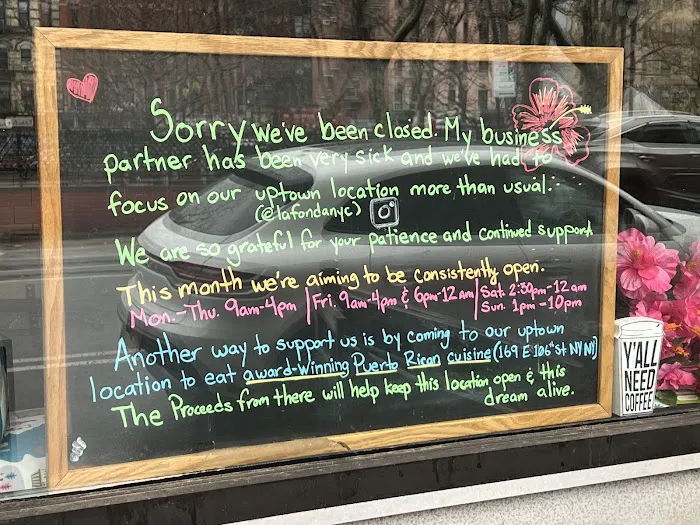 Sorry we've been closed. My business
partner has been very sick and we've had to
focus on our uptown location more than usual.
(@lafondanyc)
We are so grateful for your patience and continued support
This month we're aiming to be consistently open.
Mon.-Thu. 9am-4pm | Fri. 9am-4pm & 6pm-12am | Sat. 2:30pm-12am
Sun. 1pm-10pm
Another way to support us is by coming to our uptown
location to eat award-winning Puerto Rican cuisine (169 E 106th St NY NY)
The Proceeds from there will help keep this location open & this
dream alive.
Y'ALL
NEED
COFFEE